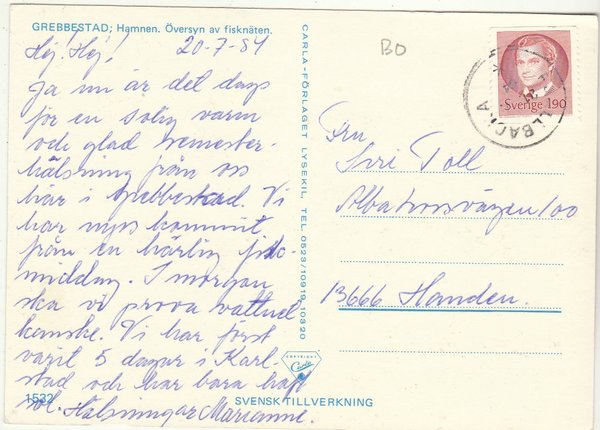 GREBBESTAD; Hamnen. Översyn av fisknäten.
Hej! Hej! 20-7-84
Ja nu är det dags
för en solig varm
och glad semester-
hälsning från oss
här i Grebbestad. Vi
har nyss kommit
från en härlig fisk-
middag. I morgon
ska vi prova vattnet
kanske. Vi har först
varit 5 dagar i Karl-
stad och har bara haft
sol. Hälsningar Marianne.
1532
SVENSK TILLVERKNING
CARLA-FÖRLAGET LYSEKIL, TEL 0523/10919, 10320
COPYRIGHT
Carla
BO
Sverige 190
Fru
Siri Toll
Albatrossvägen 100
13666 Handen.